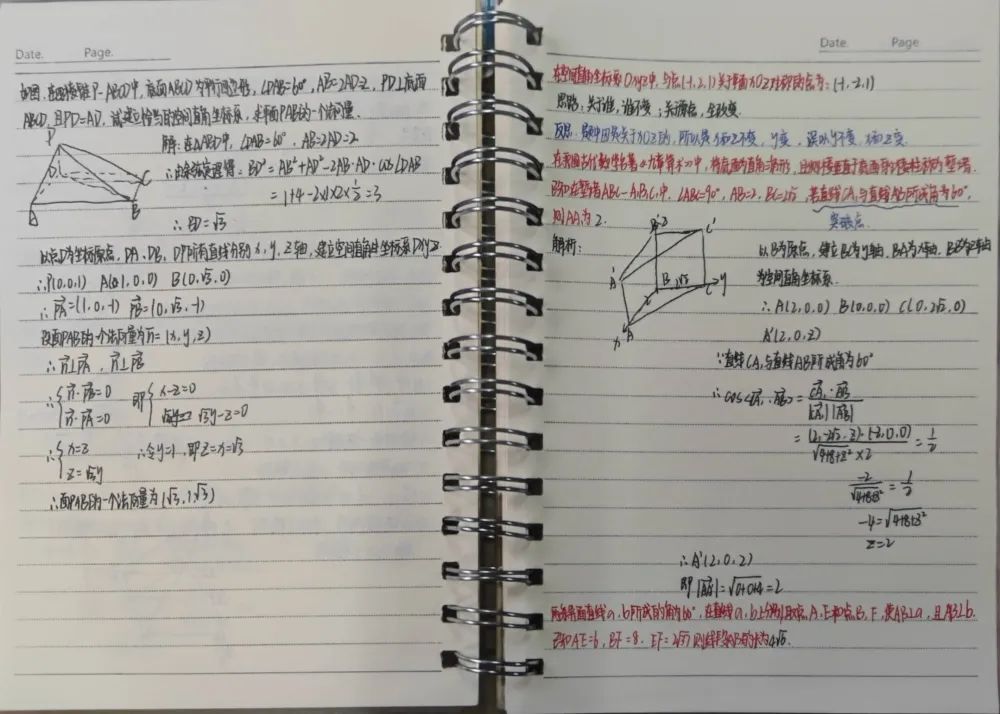 Date. Page.
如图,在四棱锥P-ABCD中,底面ABCD为平行四边形,∠DAB=60°,AB=2AD=2,PD⊥底面
ABCD,且PD=AD,试建立恰当的空间直角坐标系,求平面PAB的一个法向量.
P
D
C
A
B
解:在△ABD中,∠DAB=60°,AB=2AD=2.
∴由余弦定理得:BD²=AB²+AD²-2AB·AD·cos∠DAB
=1+4-2×1×2×½=3
∴BD=√3
以点D为坐标原点,DA、DB、DP所在直线分别为x,y,z轴,建立空间直角坐标系Dxyz
∴P(0,0,1) A(1,0,0) B(0,√3,0)
∴PA=(1,0,-1) PB=(0,√3,-1)
设面PAB的一个法向量为n=(x,y,z)
∴n⊥PA,n⊥PB
∴{n·PB=0 即{x-z=0
n·PA=0 √3y-z=0
∴{x=z ∴令y=1,即z=x=√3
z=√3y
∴面PAB的一个法向量为(√3,1,√3)
Date. Page
在空间直角坐标系Oxyz中,与点(-1,2,1)关于平面xOz对称的点为:(-1,-2,1)
思路:关于谁,谁不变;关于原点,全改变.
反思:题中因是关于xOz的,所以是x和z不变,y变,误以y不变,x和z变.
在我国古代数学名著《九章算术》中,将底面为直角三角形,且侧棱垂直于底面的三棱柱称为堑堵.
已知在堑堵ABC-A₁B₁C₁中,∠ABC=90°,AB=2,BC=2√2,若直线CA₁与直线AB所成角为60°,
则AA₁为2.
突破点.
解析:
B' z C'
A' B 2√2 C y
2
x A
以B为原点,建立BC为y轴,BA为x轴,BB'为z轴
为空间直角坐标系.
∴A(2,0,0) B(0,0,0) C(0,2√2,0)
A'(2,0,z)
∵直线CA₁与直线AB所成角为60°
∴cos<CA₁·AB>=CA₁·AB/|CA₁||AB|
=(2,-2√2,z)·(-2,0,0)/√4+8+z²×2=1/2
-2/√4+8+z²=1/2
-4=√4+8+z²
z=2
∴A'(2,0,2)
即|AA'|=√0+0+4=2
两条异面直线a,b所成的角为60°,在直线a,b上分别取点A,E和点B,F,使AB⊥a,且AB⊥b.
已知AE=6,BF=8,EF=2√37则线段AB的长为4√6.